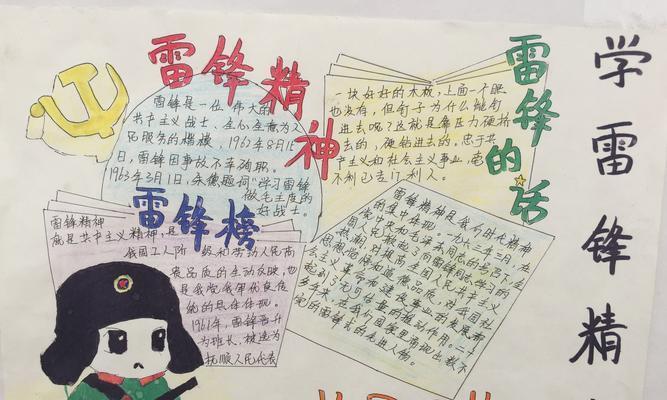 雷锋精神
雷锋是一位伟大的
共产主义战士、全心全意为人
民服务的楷模，1962年8月15
日，雷锋因事故不幸殉职。
1963年3月1日，朱德题词"学习雷锋
做毛主席的
好战士。
雷锋的话
一块好好的木板，上面一个眼
也没有，但钉子为什么能钉
进去呢？这就是靠压力硬挤
去的，硬钻进去的。忠于共
产主义和社会主义事业，毫
不利己专门利人。
学雷锋精
雷锋榜
雷锋精神
就是共产主义精神，是
我国工人阶级和劳动人民高
贵品质的生动反映，也
是我党我军优良传
统的具体体现。
1961年，雷锋晋升
为班长，被选为
抚顺人民代表
雷锋精神是我们时代精神
的集中体现。一九六三年三月，在
党中央和毛泽东同志的号召下，全
国人民掀起了向雷锋同志学习的
热潮，对提高全国人民共产主义
思想觉悟和道德品质，对我国社
会主义革命和建设事业的发展都
起到了无可估量的推动作用。二十
多年来，在我们国家里涌现出数不
完的雷锋式的先进人物。